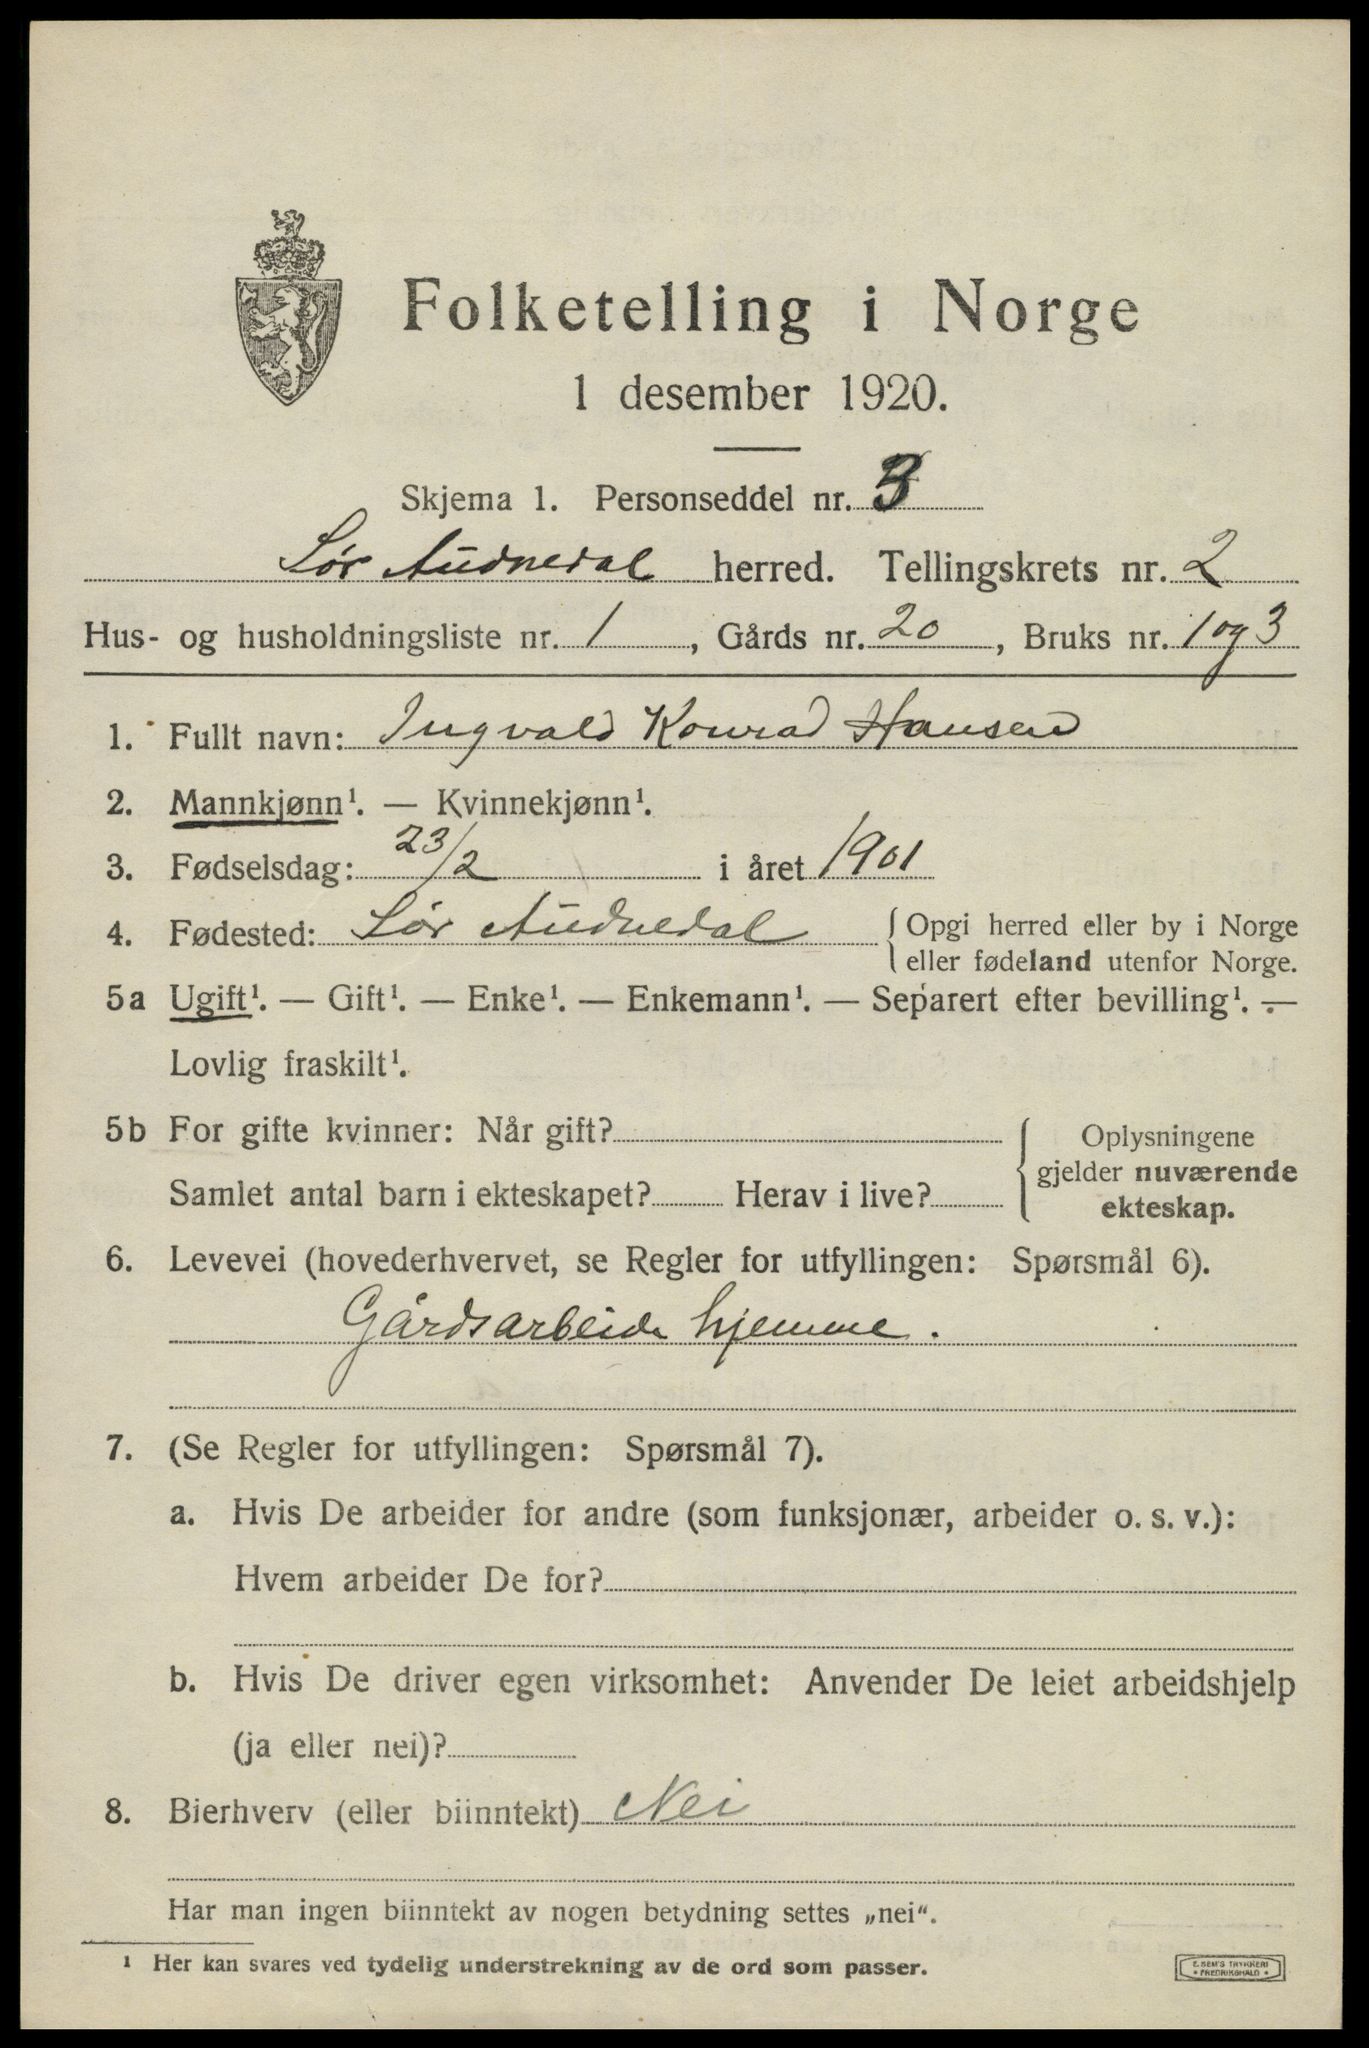 Folketelling i Norge
1 desember 1920.
Skjema 1. Personseddel nr. 3
Sør Audnedal herred. Tellingskrets nr. 2
Hus- og husholdningsliste nr. 1, Gårds nr. 20, Bruks nr. 1 og 3
1. Fullt navn: Ingvald Konrad Hansen
2. Mannkjønn¹. — Kvinnekjønn¹.
3. Fødselsdag: 23/2 i året 1901
4. Fødested: Sør Audnedal { Opgi herred eller by i Norge
eller fødeland utenfor Norge.
5a Ugift¹. — Gift¹. — Enke¹. — Enkemann¹. — Separert efter bevilling¹. —
Lovlig fraskilt¹.
5b For gifte kvinner: Når gift?
Samlet antal barn i ekteskapet? Herav i live?
Oplysningene
gjelder nuværende
ekteskap.
6. Levevei (hovederhvervet, se Regler for utfyllingen: Spørsmål 6).
Gårdsarbeide hjemme.
7. (Se Regler for utfyllingen: Spørsmål 7).
a. Hvis De arbeider for andre (som funksjonær, arbeider o. s. v.):
Hvem arbeider De for?
b. Hvis De driver egen virksomhet: Anvender De leiet arbeidshjelp
(ja eller nei)?
8. Bierhverv (eller biinntekt) Nei
Har man ingen biinntekt av nogen betydning settes „nei“.
¹ Her kan svares ved tydelig understrekning av de ord som passer.
E. SEM'S TRYKKERI
• FREDRIKSHALD •